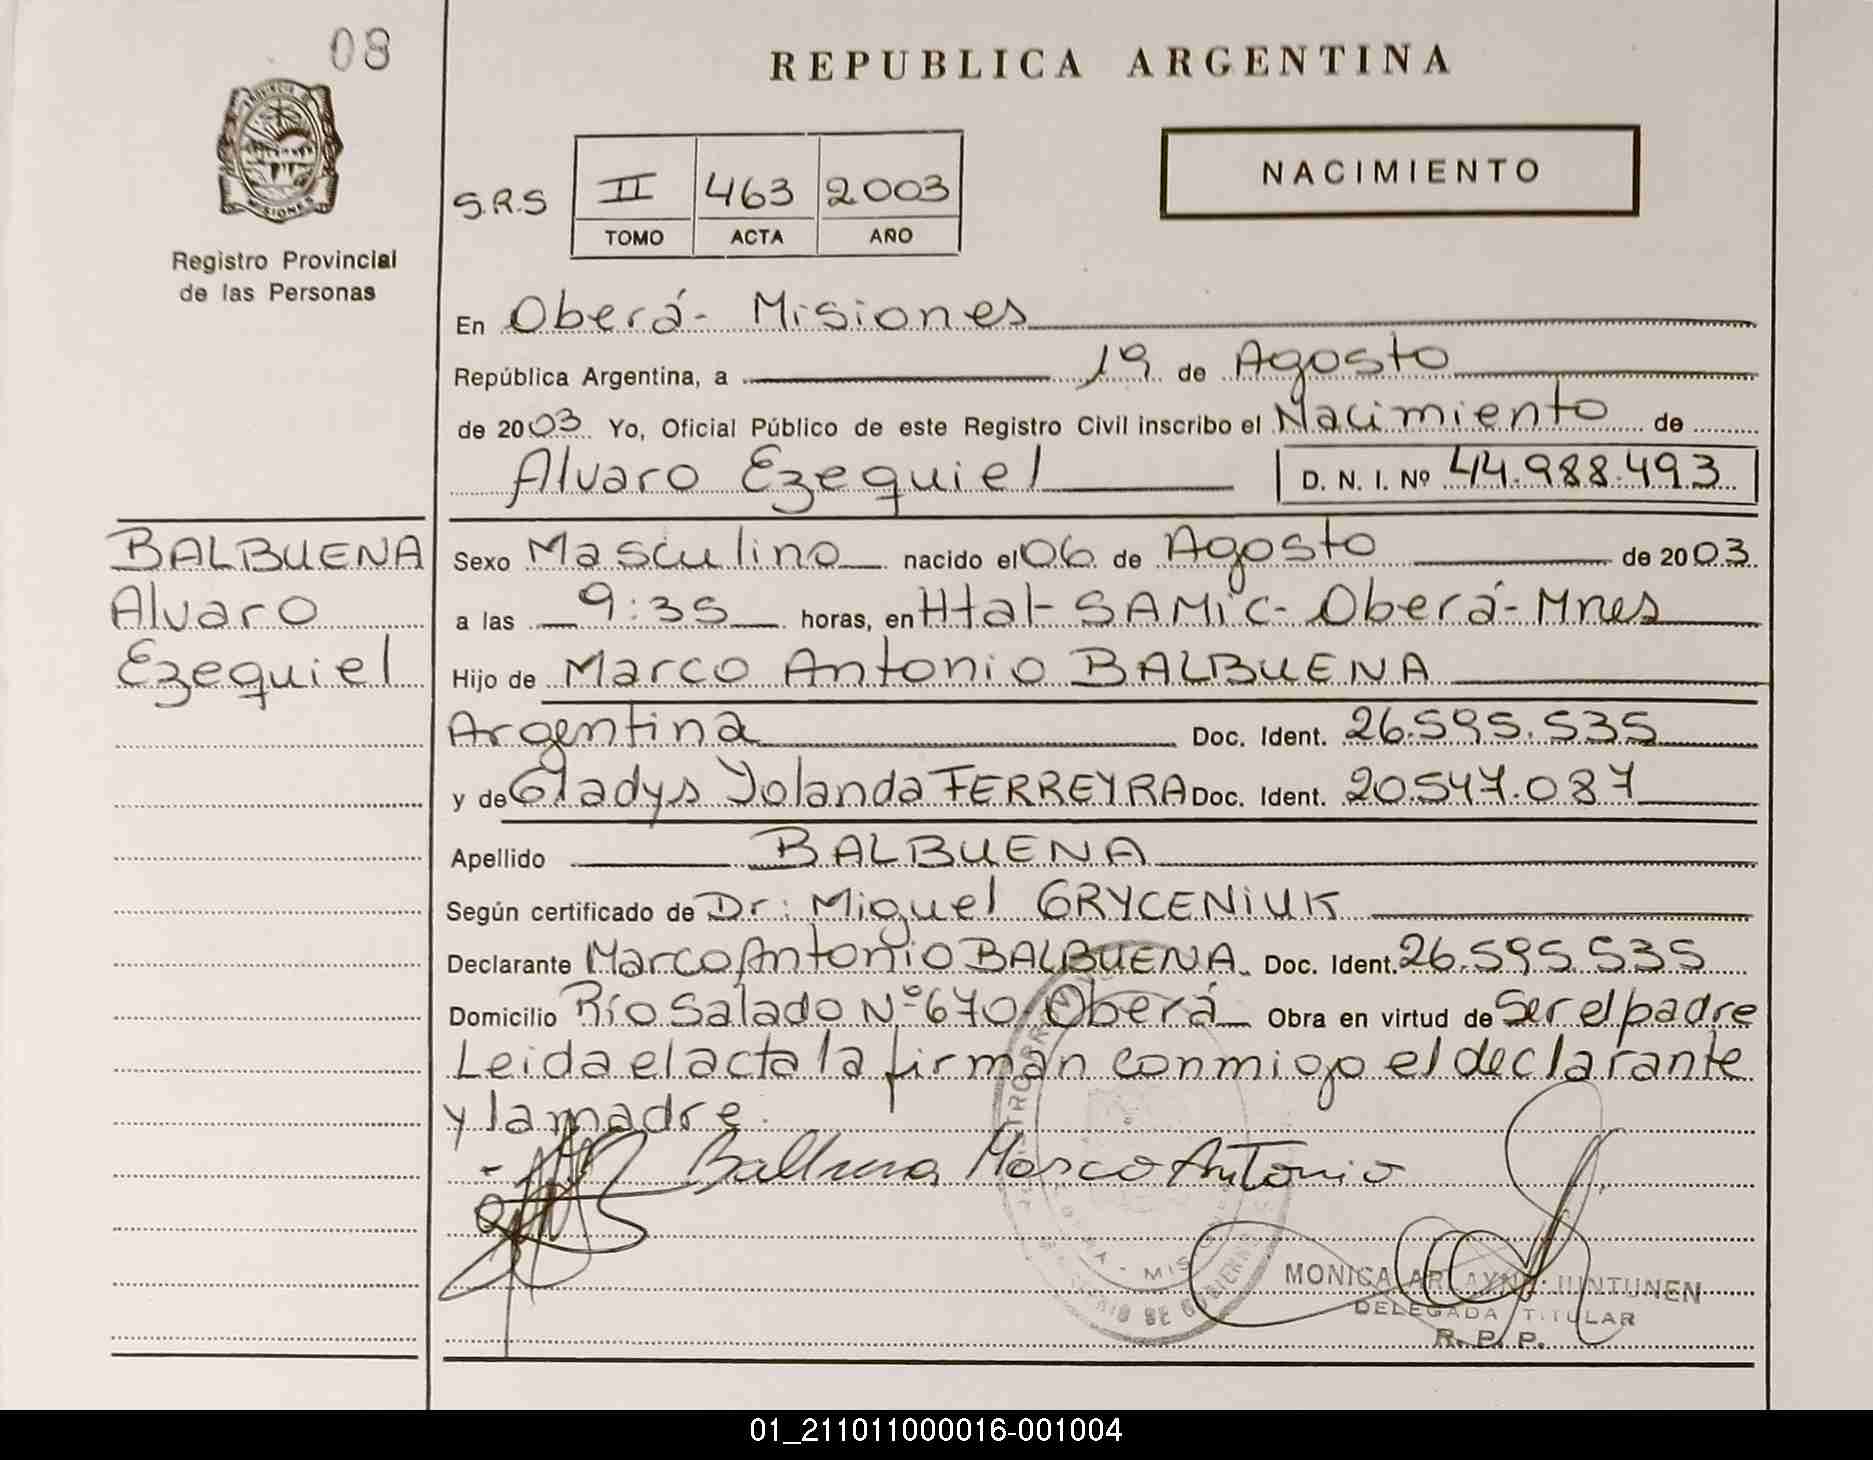 08
REPUBLICA ARGENTINA
PROVINCIA DE
MISIONES
Registro Provincial
de las Personas
NACIMIENTO
S.R.S II 463 2003
TOMO ACTA AÑO
En Oberá- Misiones
República Argentina, a 19 de Agosto
de 2003 Yo, Oficial Público de este Registro Civil inscribo el Nacimiento de
Alvaro Ezequiel D. N. I. Nº 44.988.493
BALBUENA
Alvaro
Ezequiel
Sexo Masculino nacido el 06 de Agosto de 2003
a las 9:35 horas, en Htal- SAMic- Oberá- Mnes
Hijo de Marco Antonio BALBUENA
Argentina Doc. Ident. 26.595.535
y de Gladys Yolanda FERREYRA Doc. Ident. 20.547.087
Apellido BALBUENA
Según certificado de Dr: Miguel GRYCENIUK
Declarante Marco Antonio BALBUENA Doc. Ident. 26.595.535
Domicilio Río Salado Nº 670 Oberá Obra en virtud de Ser el padre
Leida el acta la firman conmigo el declarante
y la madre.
Balbuena Marco Antonio
MONICA
DELEGADA TITULAR
R. P. P.
01_211011000016-001004